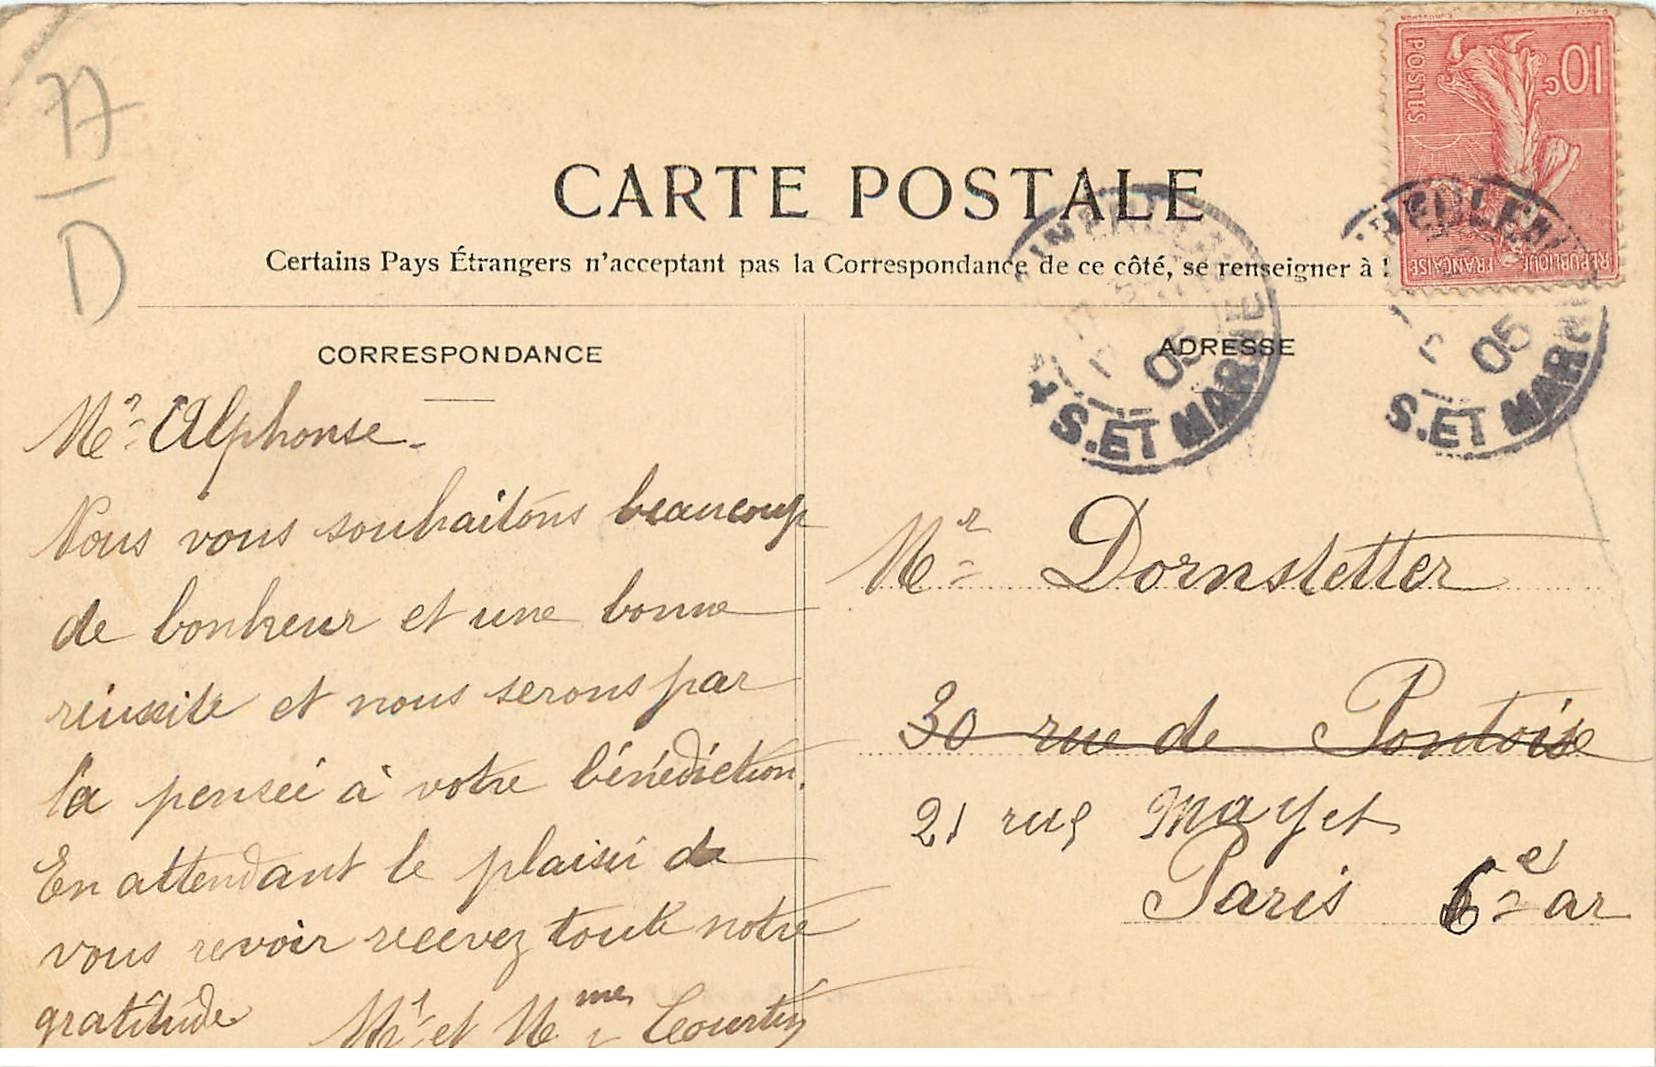 77
D
CARTE POSTALE
Certains Pays Étrangers n'acceptant pas la Correspondance de ce côté, se renseigner à
CORRESPONDANCE
Mr Alphonse
Nous vous souhaitons beaucoup
de bonheur et une bonne
réussite et nous serons par
la pensée à votre bénédiction.
En attendant le plaisir de
vous revoir recevez toute notre
gratitude
Mr et Mme Courtin
ADRESSE
Mr Dornstetter
30 rue de Pontoise
21 rue Mayet
Paris 6e ar
10c
POSTES
REPUBLIQUE FRANÇAISE
05
S. ET MARNE
05
S. ET MARNE